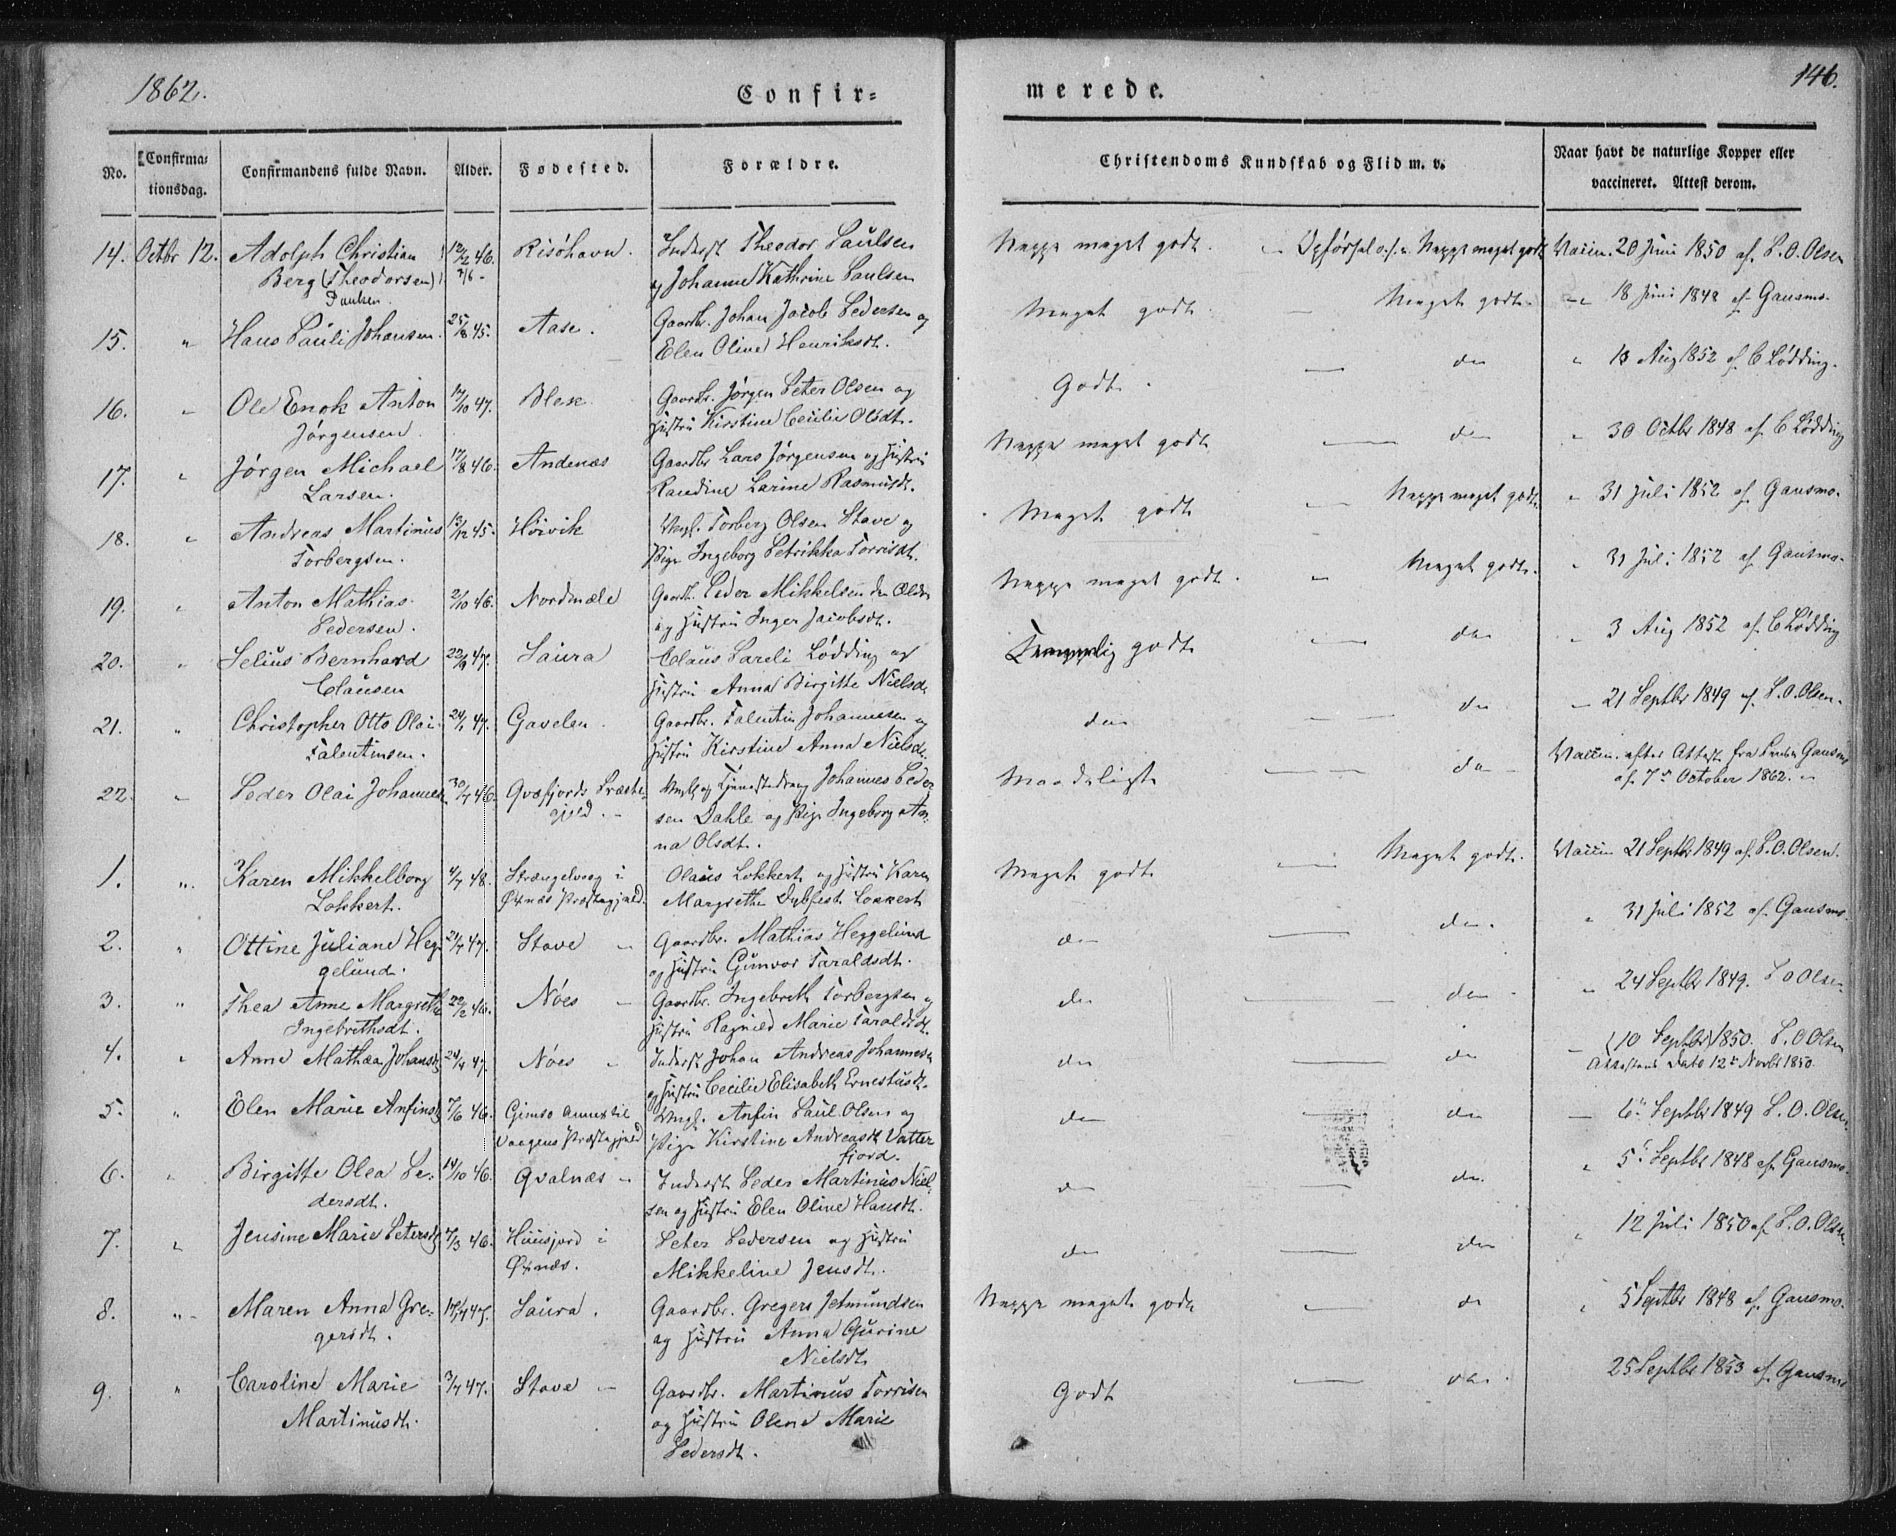 1862.
Confir-
merede.
146.
No.
Confirma-
tionsdag.
Confirmandens fulde Navn.
Alder.
Fødested.
Forældre.
Christendoms Kundskab og Flid m. v.
Naar havt de naturlige Kopper eller
vaccineret. Attest derom.
14. Octbr 12. Adolph Christian 12/2 46. Risøhavn. Inderst Theodor Paulsen Neppe meget godt. - Opførsel o.s.v. Neppe meget godt Vaccin. 20 Juni 1850 af P. O. Olsen
Berg (Theodorsen) og Johanne Kathrine Paulsen
Paulsen.
15. " Hans Pauli Johansen. 25/8 45. Aase. Gaardbr. Johan Jacob Pedersen og Meget godt. — Meget godt. 18 Juni 1848 af Gausmo.
Elen Oline Henriksdt.
16. " Ole Enok Anton 17/10 47. Bleik Gaardbr. Jørgen Peter Olsen og Godt. — do " 13 Aug 1852 af C Lødding.
Jørgensen. Hustru Kirstine Cecilie Olsdt.
17. " Jørgen Michael 17/8 46. Andenæs Gaardbr Lars Jørgensen og Hustru Neppe meget godt — do " 30 Octbr 1848 af C Lødding
Larsen. Randine Larine Rasmusdt.
18. " Andreas Martinus 13/12 45. Høivik Ungk. Torberg Olsen Stave og Meget godt — Neppe meget godt. " 31 Juli 1852 af Gausmo.
Torbergsen. Pige Ingeborg Petrikka Torrisdt.
19. " Anton Mathias 2/10 46. Nordmæle Gaardb. Peder Mikkelsen den Ældre Neppe meget godt. — Meget godt. " 31 Juli 1852 af Gausmo.
Pedersen. og Hustru Inger Jacobsdt.
20. " Selius Bernhard 22/9 47. Saura Claus Pareli Lødding og Temmelig godt — do " 3 Aug 1852 af C Lødding
Clausen Hustru Anna Birgitte Nielsdt.
21. " Christopher Otto Olai 24/1 47. Gavelen. Gaardbr. Falentin Johannesen og do — do — 21 Septbr 1849 af P. O. Olsen.
Falentinsen. Hustru Kirstine Anna Nielsdt.
22. " Peder Olai Johannesen 30/7 46. Qvæfjords Præste- Johannes Peder- Maadeligt — do — Vaccin. efter Attest fra Gausmo
gjeld. sen Dahle og Pige Ingeborg An- af 7de October 1862.
na Olsdt.
1. " Karen Mikkelborg 4/7 48. Strengelvaag i Olaus Lokkert og Hustru Karen Meget godt — Meget godt. Vaccin 21 Septbr 1849 af P. O. Olsen.
Lokkert. Øxnæs Præstegjeld. Margrethe Dybfest Lokkert
2. " Ottine Juliane Heg- 21/4 47. Stave — Gaardbr. Mathias Heggelund do — do. " 31 Juli 1852 af Gausmo.
gelund. og Hustru Gunvor Taraldsdt.
3. " Thea Anne Margrethe 22/2 46. Nøes — Gaardbr. Ingebreth Torbergsen og do — do " 24 Septbr 1849. P O Olsen
Ingebrethsdt. Hustru Ragnild Marie Taraldsdt.
4. " Anne Mathea Johansdt 24/4 47. Nøes — Inderst Johan Andreas Johannesen do — do — (10 Septbr) 1850. P. O Olsen
og Hustru Cecilie Elisabeth Ernestusdt. Attestens Dato 12te Novbr 1850.
5. " Elen Marie Anfinsdt 7/6 46. Gimsø Annex til Ungk. Anfin Paul Olsen og do do — 6te Septbr 1849 P. O. Olsen
Vaagens Præstegjeld Pige Kirstine Andreasdt Vatter
fjord.
6. " Birgitte Olea Pe- 14/10 46. Qvalnæs — Inderst Peder Martinus Niel- do — do. " 5te Septbr 1848 af Gausmo.
dersdt. sen og Hustru Elen Oline Hansdt.
7. " Jensine Marie Petersdt 7/3 46. Huusjord i Peter Pedersen og Hustru do — do " 12 Juli 1850 af P. O. Olsen
Øxnæs. Mikkeline Jensdt.
8. " Maren Anna Gre- 17/4 47. Saura. Gaardbr. Gregers Jetmundsen Neppe meget godt — do " 5 Septbr 1848 af Gausmo.
gersdt. og Hustru Anna Gurine
Nielsdt
9. " Caroline Marie 3/7 47. Stave — Gaardbr. Martinus Torrisen Godt — do. 25 Septbr 1853 af Gausmo
Martinusdt. og Hustru Olene Marie
Pedersdt.